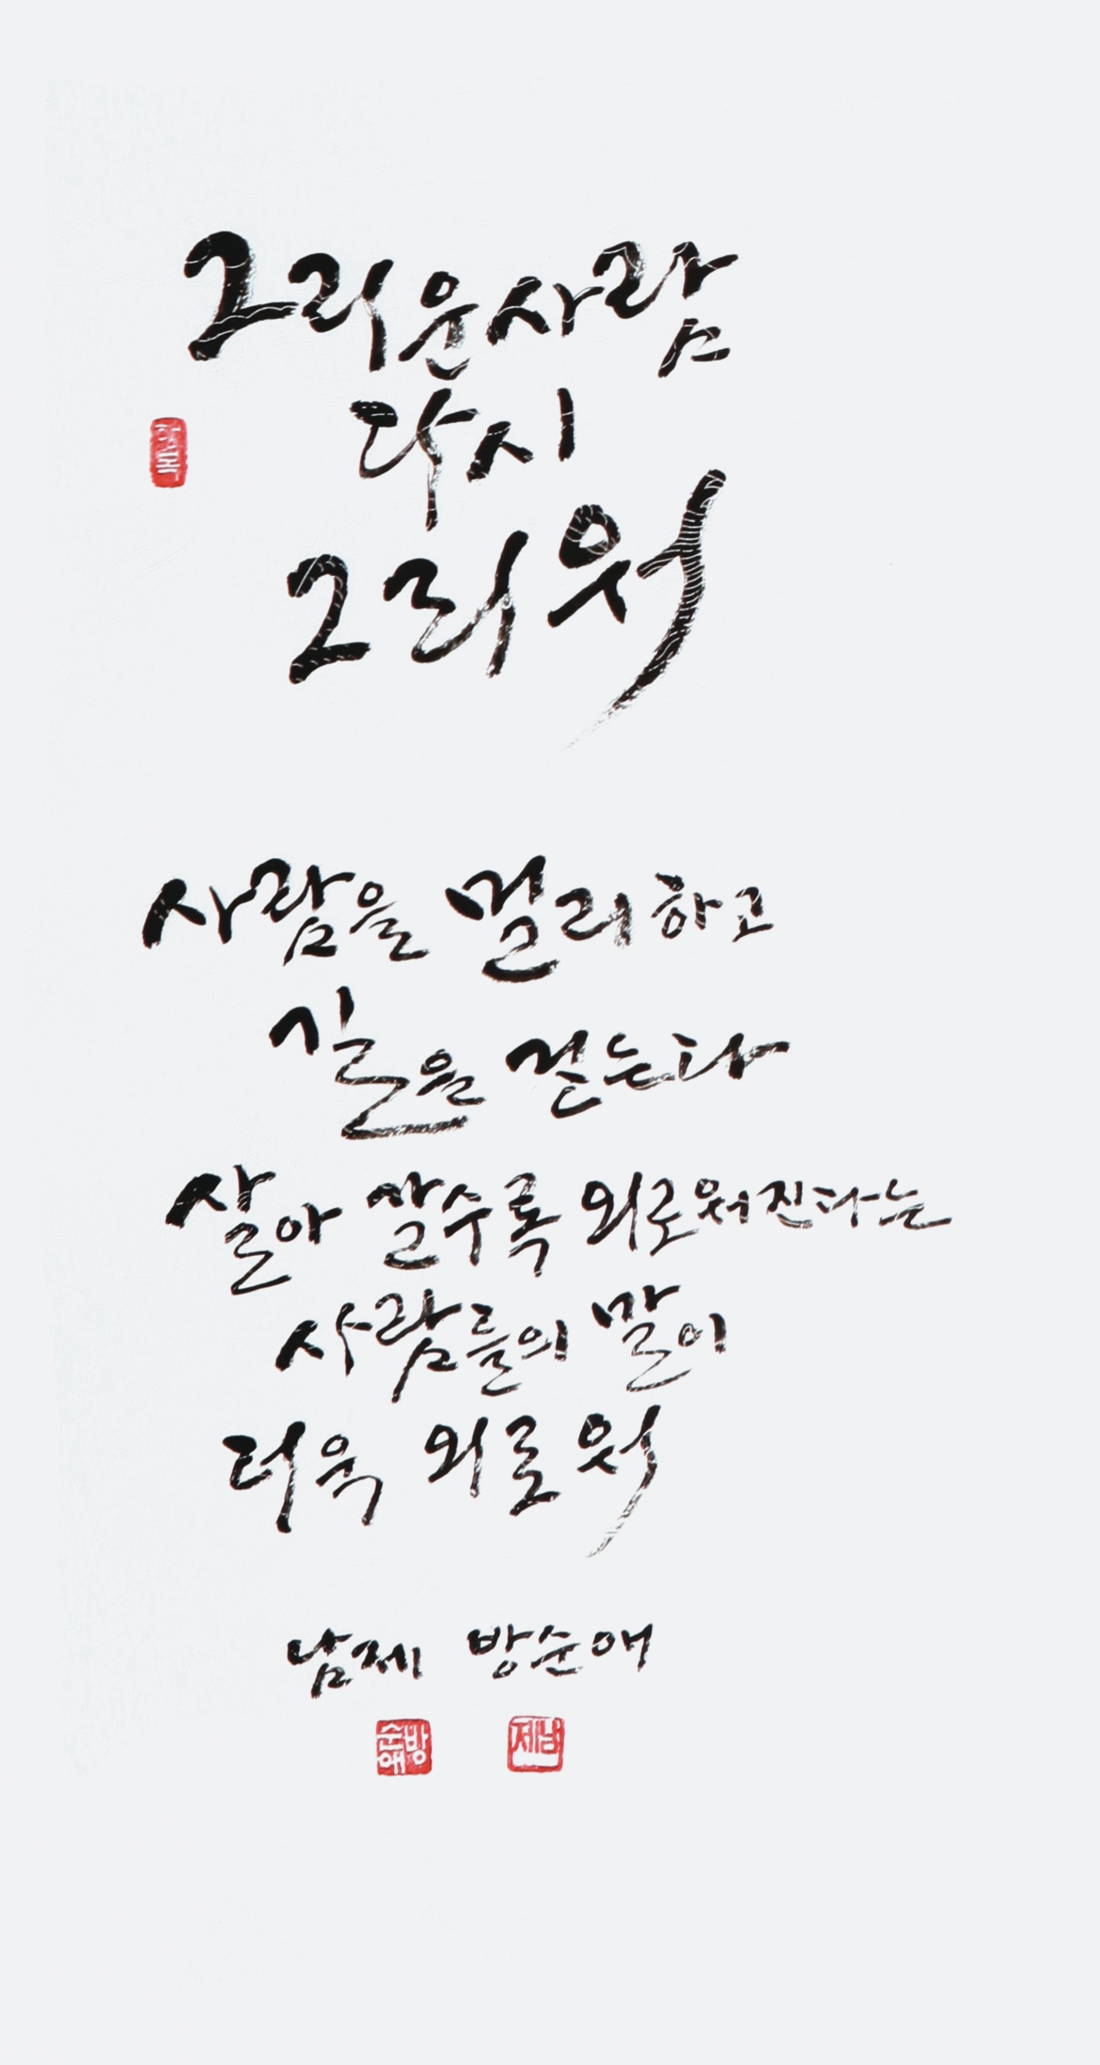 그리운사람
다시
그리워
사람을 멀리하고
길을 걷는다
살아 갈수록 외로워진다는
사람들의 말이
더욱 외로워
남제 방순애
방순애
남제